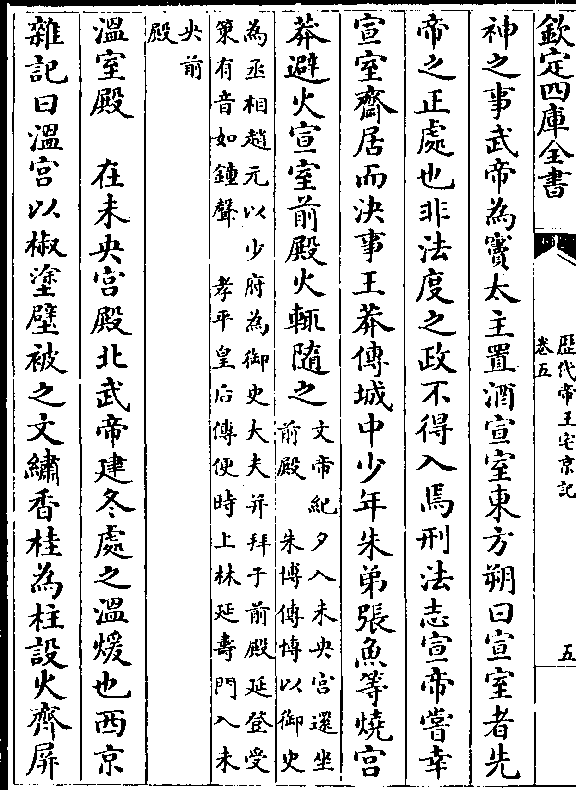 欽定四庫全書
歷代帝王宅京記
卷五
五
神之事武帝為竇太主置酒宣室東方朔曰宣室者先
帝之正處也非法度之政不得入焉刑法志宣帝嘗幸
宣室齋居而決事王莽傳城中少年朱弟張魚等燒宮
莽避火宣室前殿火輒隨之
文帝紀夕入未央宮還坐
前殿 朱博傳博以御史
為丞相趙元以少府為御史大夫并拜于前殿延登受
策有音如鍾聲 孝平皇后傳便時上林延壽門入未
央前
殿
溫室殿 在未央宮殿北武帝建冬處之溫煖也西京
雜記曰溫宮以椒塗壁被之文繡香桂為柱設火齊屏